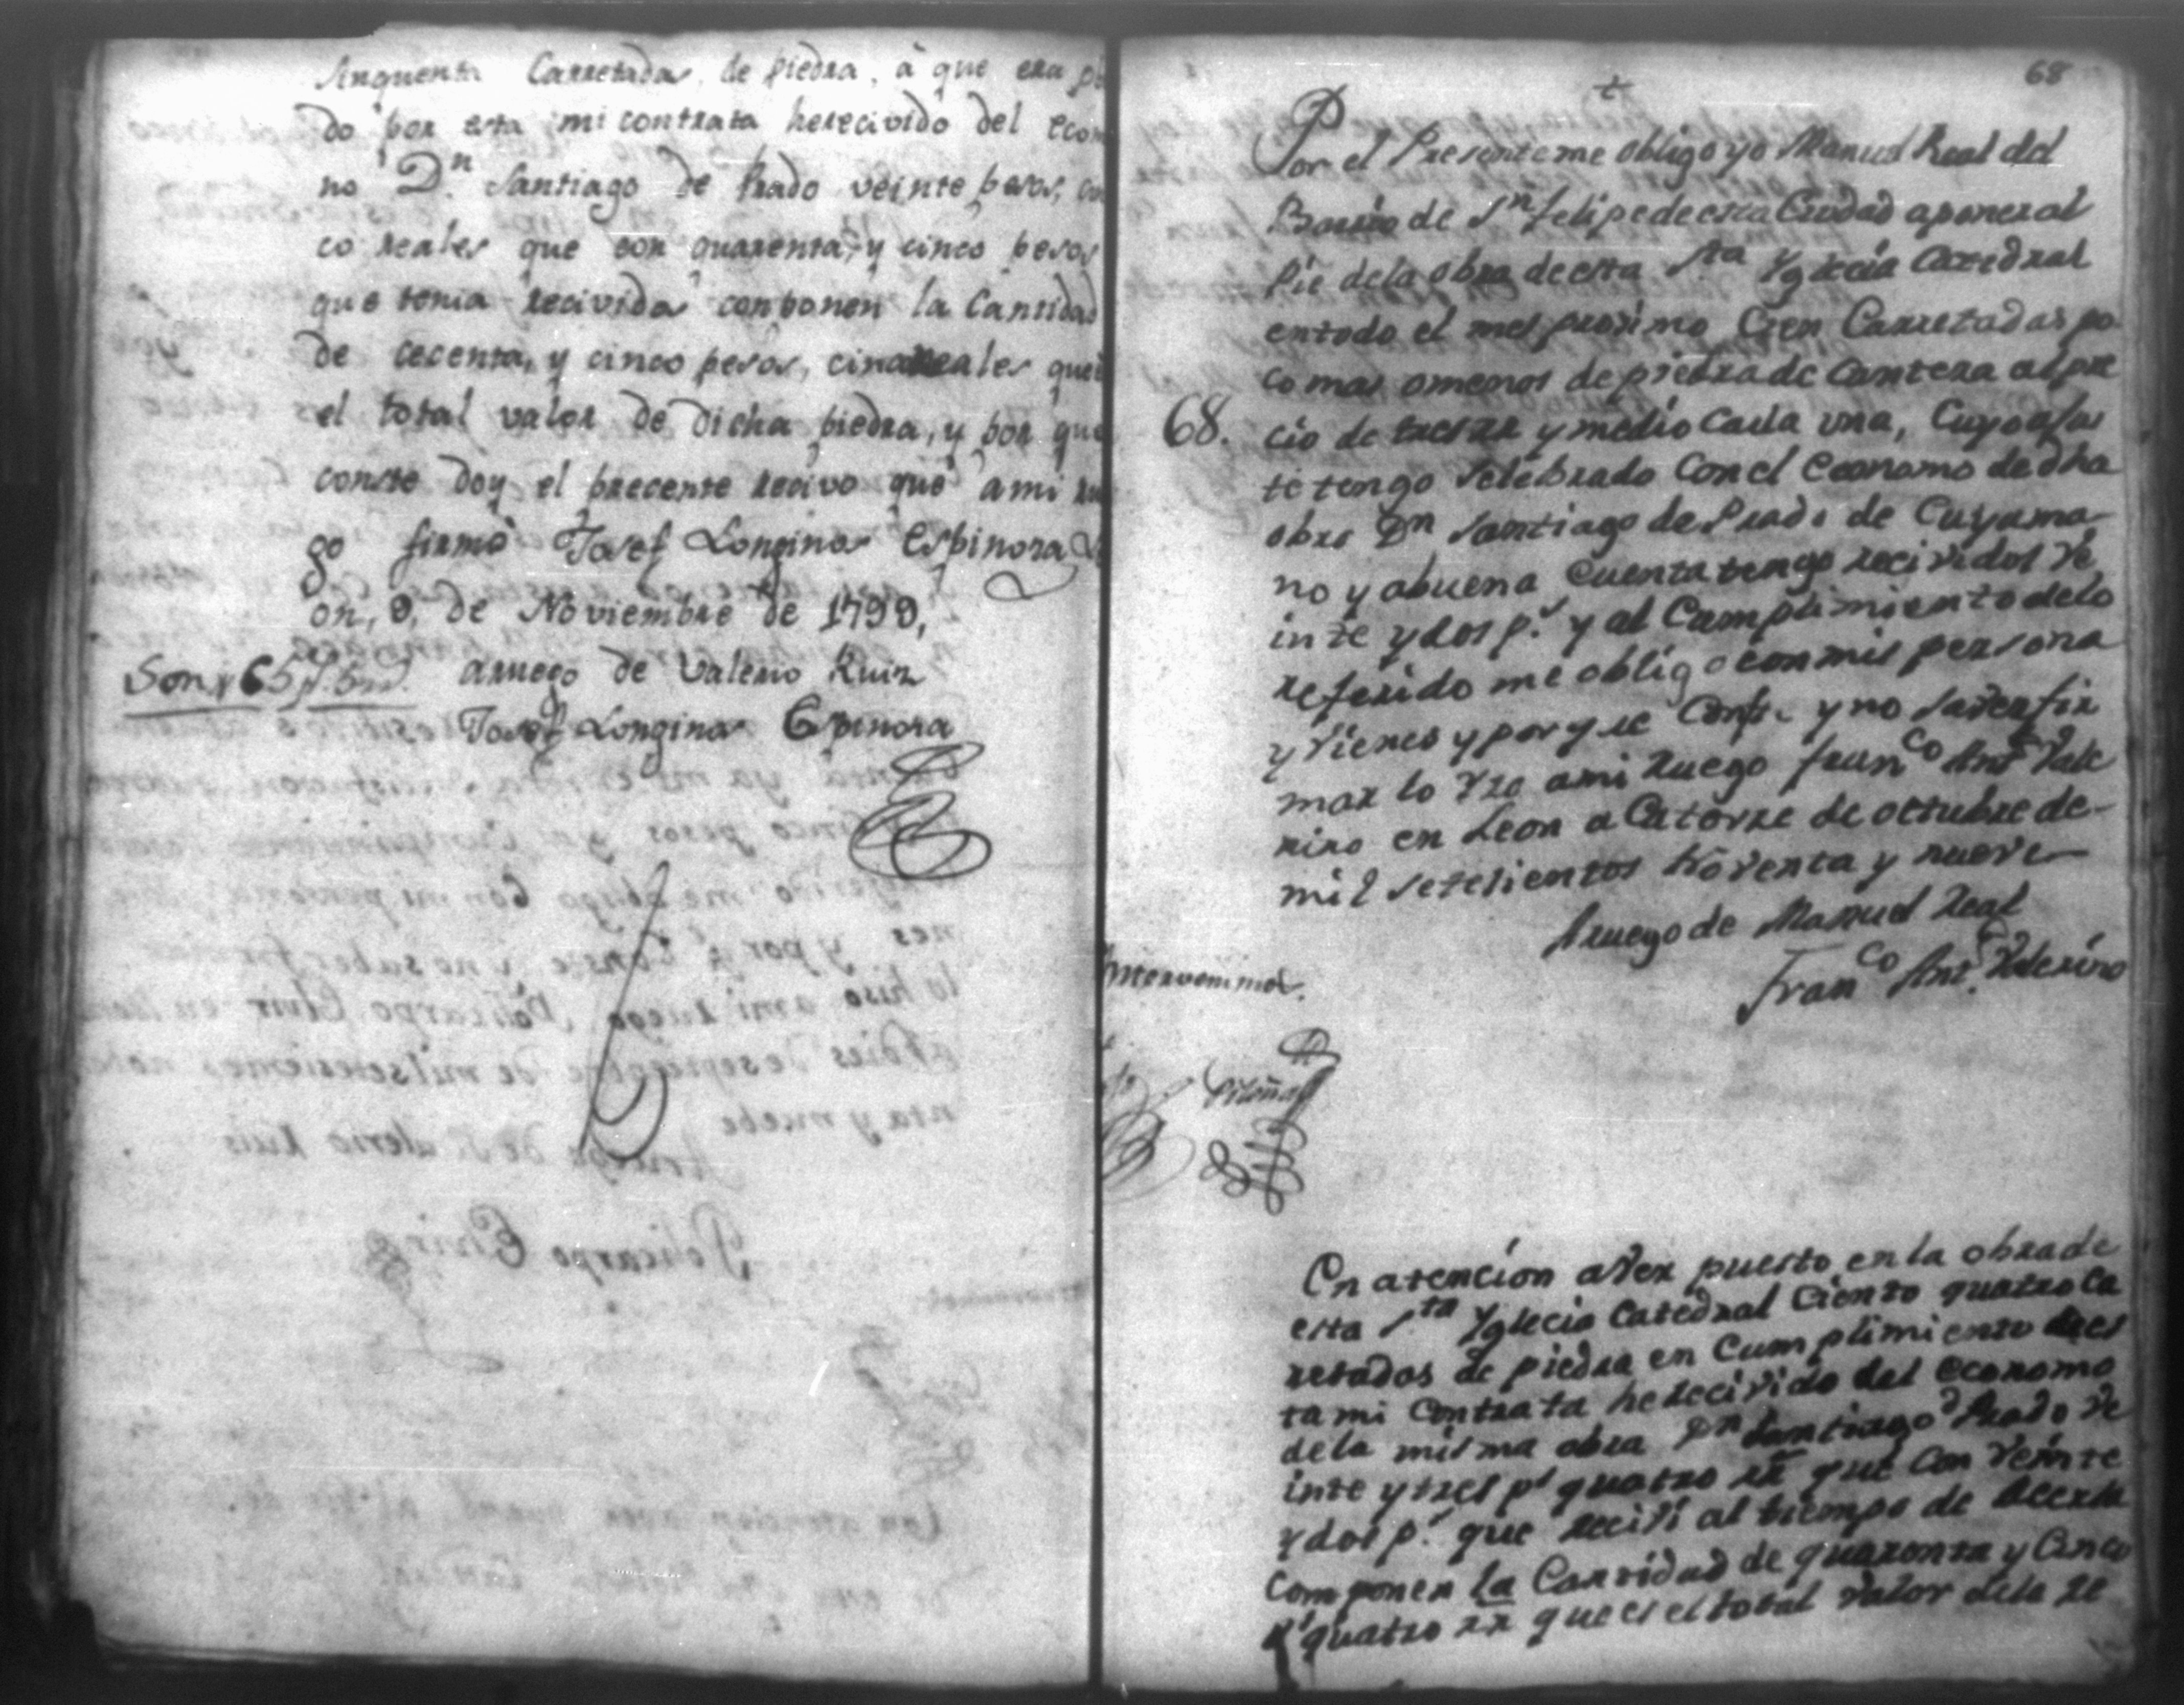 sinquenta Carretadas, de piedra, à que era
do por esta mi contrata herecivido del econ
no Dn. Santiago de Prado veinte pesos,
co reales que con quarenta, y cinco pesos
que tenia recivida conponen la Cantidad
de cecenta, y cinco pesos, cinco reales que
el total valor de dicha piedra, y por que
conste doy el precente recivo que a mi ru
go firmò Josef Longinos Espinosa
on, 9, de Noviembre de 1799,
Son 65 ps. 5 rs. arruego de Valerio Ruiz
Josef Longinos Espinosa
68
Por el Presente me obligo yo Manuel Real del
Barrio de Sn felipe de esta Ciudad a poner al
Pie dela obra de esta Sta Yglecia Catedral
entodo el mes procsimo Cien Carretadas po
co mas omenos de piedra de Cantera al pre
68. cio de tres rr y medio Cada una, Cuyo ajus
te tengo Selebrado Con el Economo de dha
obra Dn Santiago de Prado de Cuyama
no y abuena Cuenta tengo recividos Ve
inte y dos ps. y al Cumplimiento delo
referido me obligo con mis persona
y Vienes y por q se Conste y no Saver fir
mar lo Yzo ami Ruego franco Ant Vale
rino en Leon a Catorze de octubre de
mil Setesientos Noventa y nueve
Aruego de Manuel Real
Franco Ant. Valerino
Intervenimos.
Piloña
En atencion aver puesto en la obra de
esta Sta Yglecia Catedral Ciento quatro Ca
rretadas de piedra en Cumplimiento de es
ta mi Contrata he recivido del economo
dela misma obra Dn Santiago d Prado Ve
inte y tres ps quatro rr que Con Veinte
y dos ps. que recivi al tiempo de
Componen la Cantidad de quarenta y Cinco
ps quatro rr que es el total Valor dela re